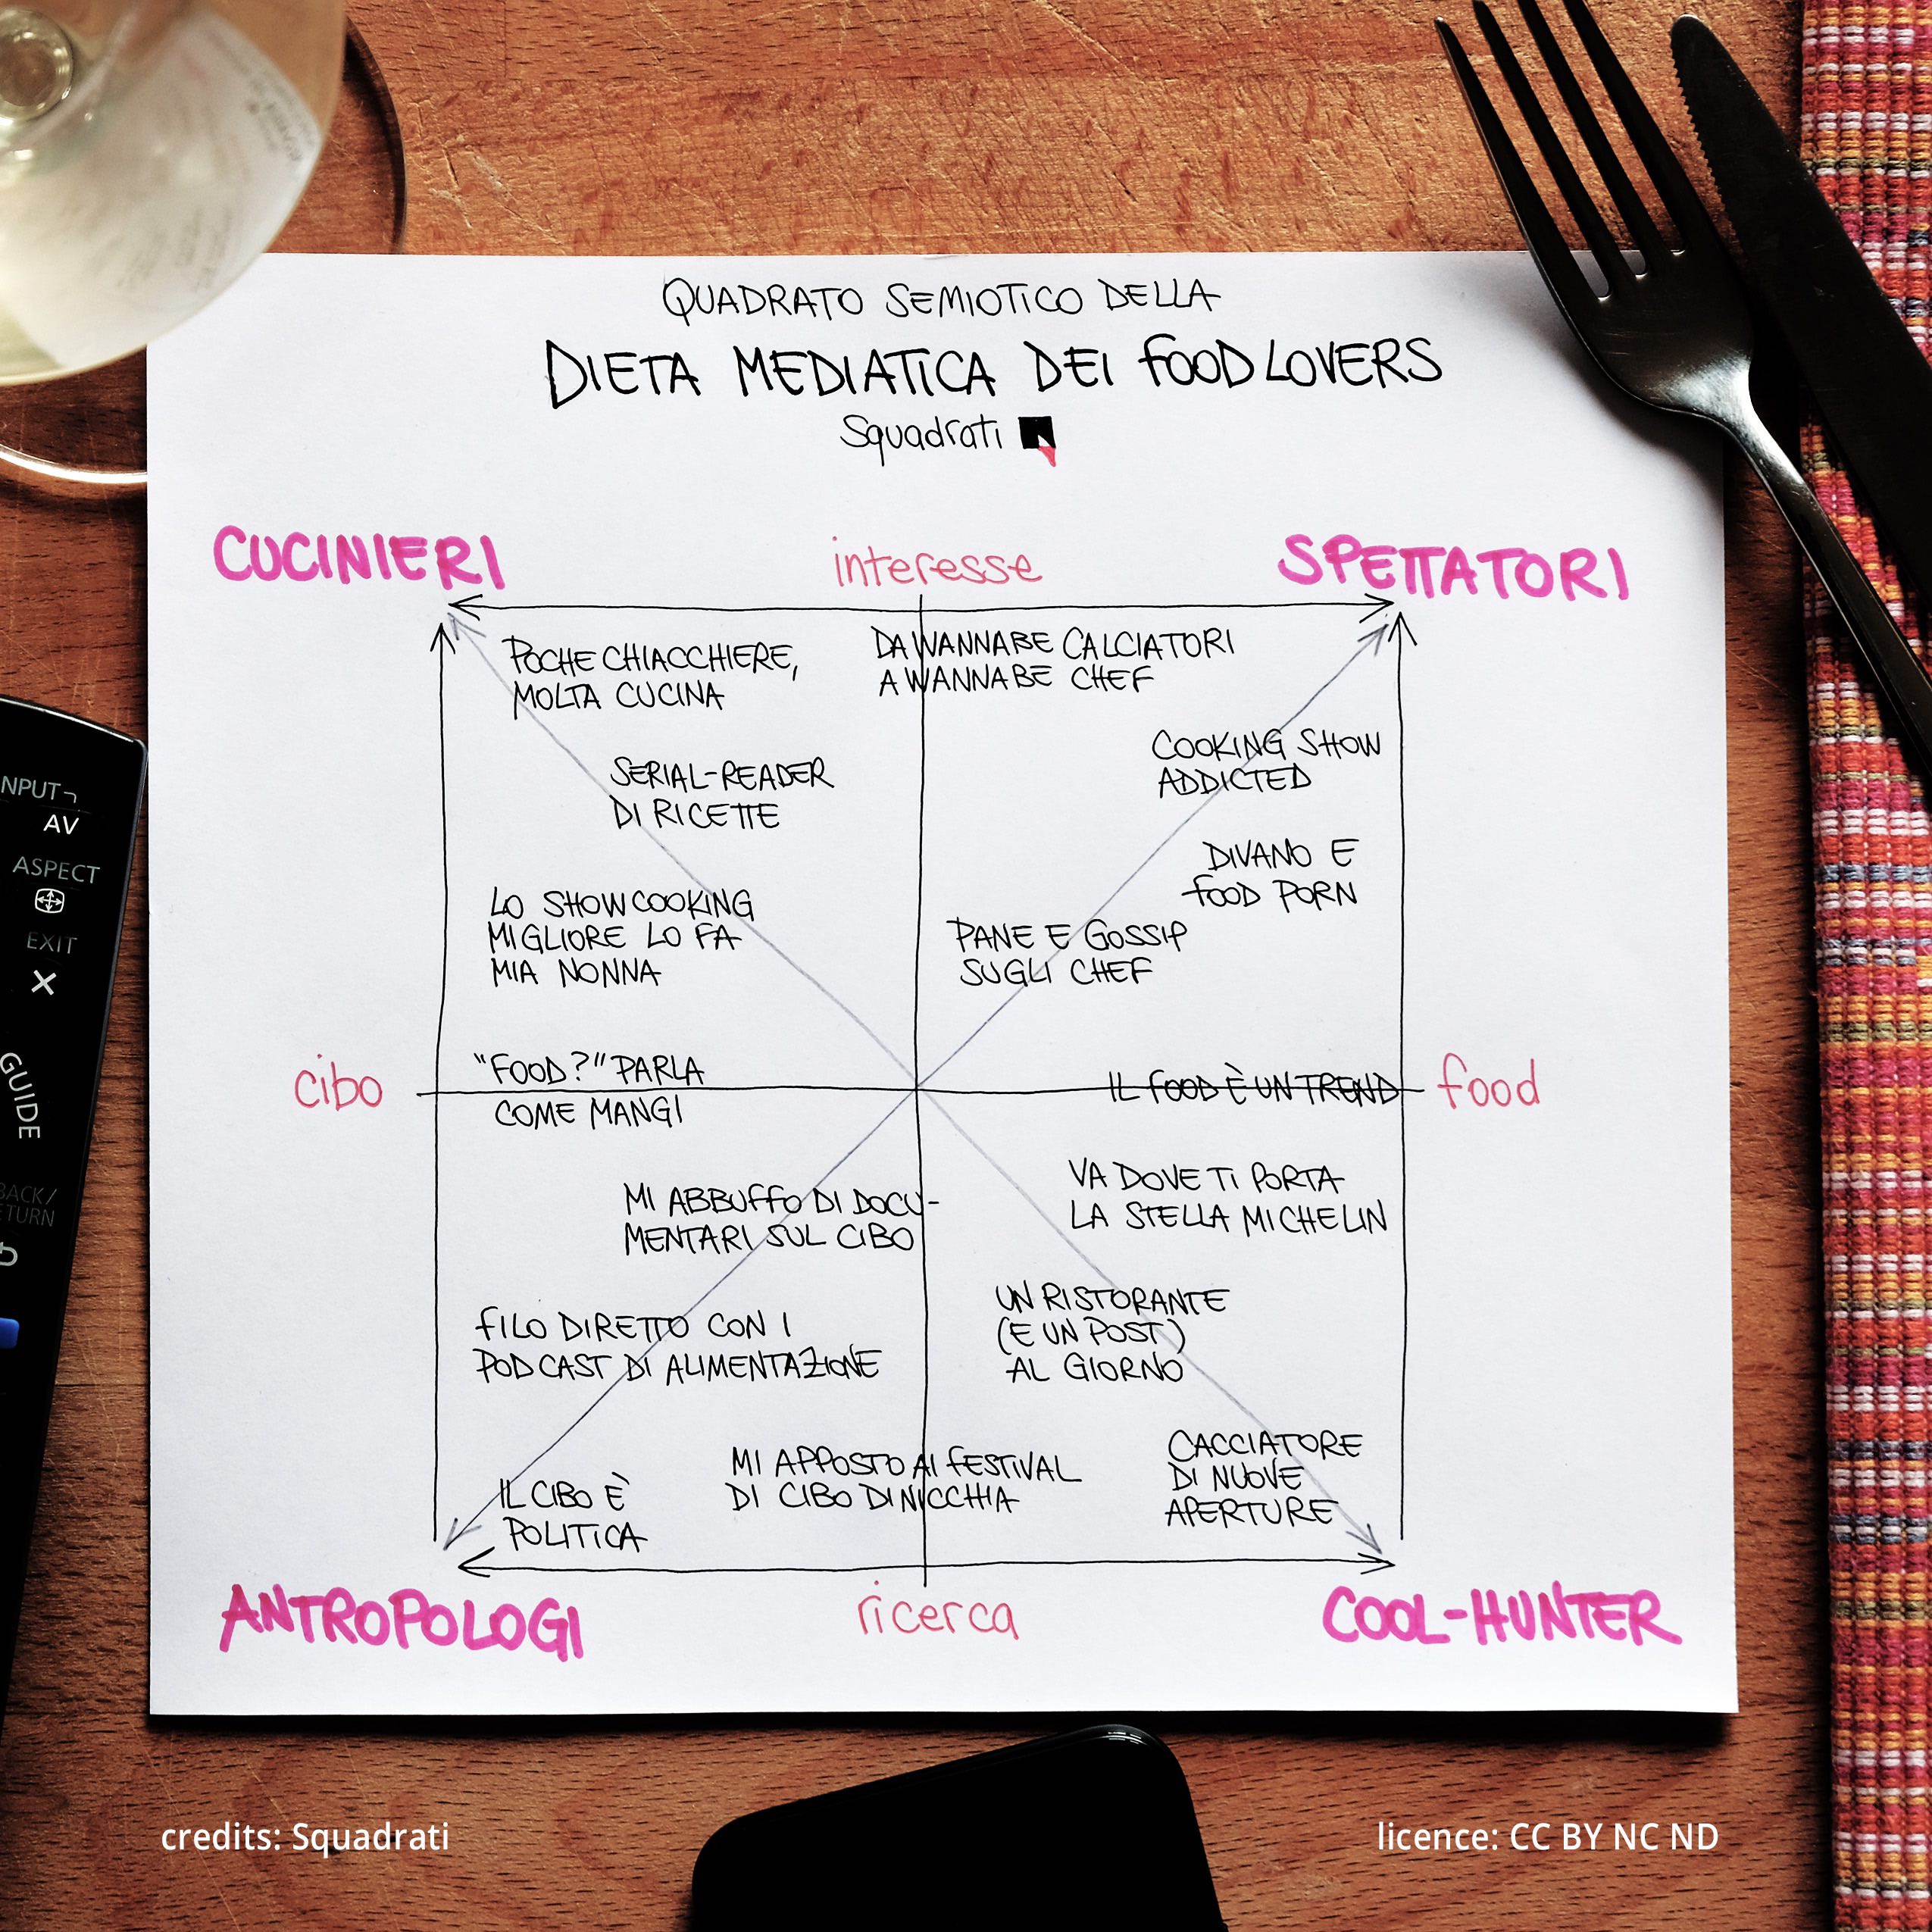 QUADRATO SEMIOTICO DELLA
DIETA MEDIATICA DEI FOODLOVERS
Squadrati
CUCINIERI
interesse
SPETTATORI
POCHE CHIACCHIERE,
MOLTA CUCINA
DA WANNABE CALCIATORI
A WANNABE CHEF
SERIAL-READER
DI RICETTE
COOKING SHOW
ADDICTED
DIVANO E
FOOD PORN
LO SHOWCOOKING
MIGLIORE LO FA
MIA NONNA
PANE E GOSSIP
SUGLI CHEF
cibo
"FOOD?" PARLA
COME MANGI
IL FOOD È UN TREND
food
MI ABBUFFO DI DOCU-
MENTARI SUL CIBO
VA DOVE TI PORTA
LA STELLA MICHELIN
FILO DIRETTO CON I
PODCAST DI ALIMENTAZIONE
UN RISTORANTE
(E UN POST)
AL GIORNO
IL CIBO È
POLITICA
MI APPOSTO AI FESTIVAL
DI CIBO DI NICCHIA
CACCIATORE
DI NUOVE
APERTURE
ANTROPOLOGI
ricerca
COOL-HUNTER
NPUT
AV
ASPECT
EXIT
GUIDE
BACK/
ETURN
credits: Squadrati
licence: CC BY NC ND